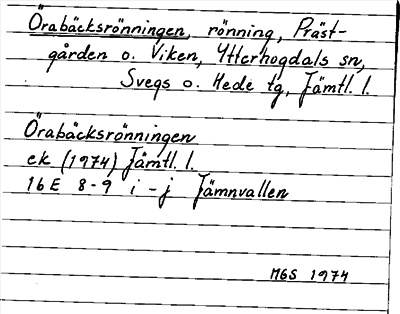 Örabäcksrönningen, rönning, Präst-
gården o. Viken, Ytterhogdals sn,
Svegs o. Hede tg, Jämtl. l.
Örabäcksrönningen
ek (1974) Jämtl. l.
16E 8-9 i-j Jämnvallen
MGS 1974